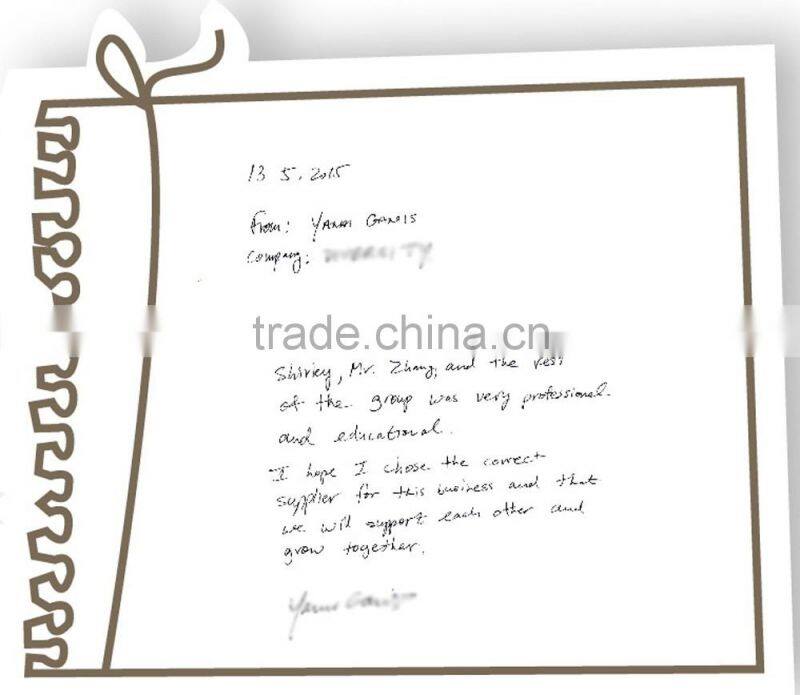 13 5. 2015
From:
Company:
trade.china.cn
Shirley, Mr. Zhang, and the rest
of the group was very professional
and educational.
I hope I chose the correct
supplier for this business and that
we will support each other and
grow together.